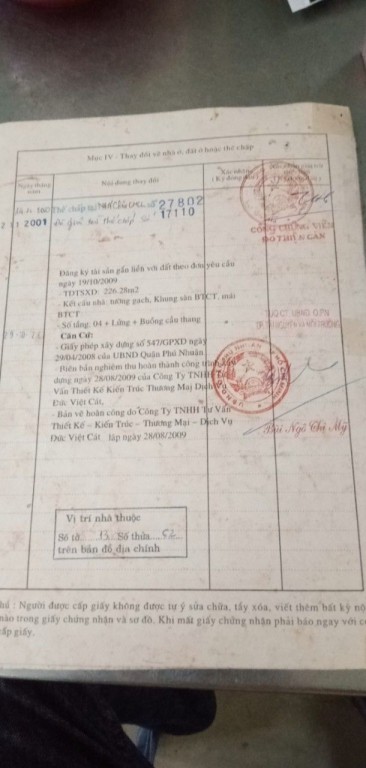 Mục IV - Thay đổi về nhà ở, đất ở hoặc thế chấp
Ngày tháng năm
Nội dung thay đổi
Xác nhận
Thế chấp số 27802
2 11 2001 Đã giải tỏa thế chấp số 17110
CÔNG CHỨNG VIÊN
Đăng ký tài sản gắn liền với đất theo đơn yêu cầu
ngày 19/10/2009
- TDTSXD: 226.28m2
- Kết cấu nhà: tường gạch, Khung sàn BTCT, mái
BTCT
- Số tầng: 04 + Lửng + Buồng cầu thang
Căn Cứ:
- Giấy phép xây dựng số 547/GPXD ngày
29/04/2008 của UBND Quận Phú Nhuận
- Biên bản nghiệm thu hoàn thành công trình
dựng ngày 28/08/2009 của Công Ty TNHH Tư
Vấn Thiết Kế Kiến Trúc Thương Mại Dịch
Đức Việt Cát,
- Bản vẽ hoàn công do Công Ty TNHH Tư Vấn
Thiết Kế – Kiến Trúc – Thương Mại – Dịch Vụ
Đức Việt Cát lập ngày 28/08/2009
Bùi Ngô Thị Mỹ
Vị trí nhà thuộc
Số tờ 13 Số thửa
trên bản đồ địa chính
: Người được cấp giấy không được tự ý sửa chữa, tẩy xóa, viết thêm bất kỳ
nào trong giấy chứng nhận và sơ đồ. Khi mất giấy chứng nhận phải báo ngay với
cấp giấy.